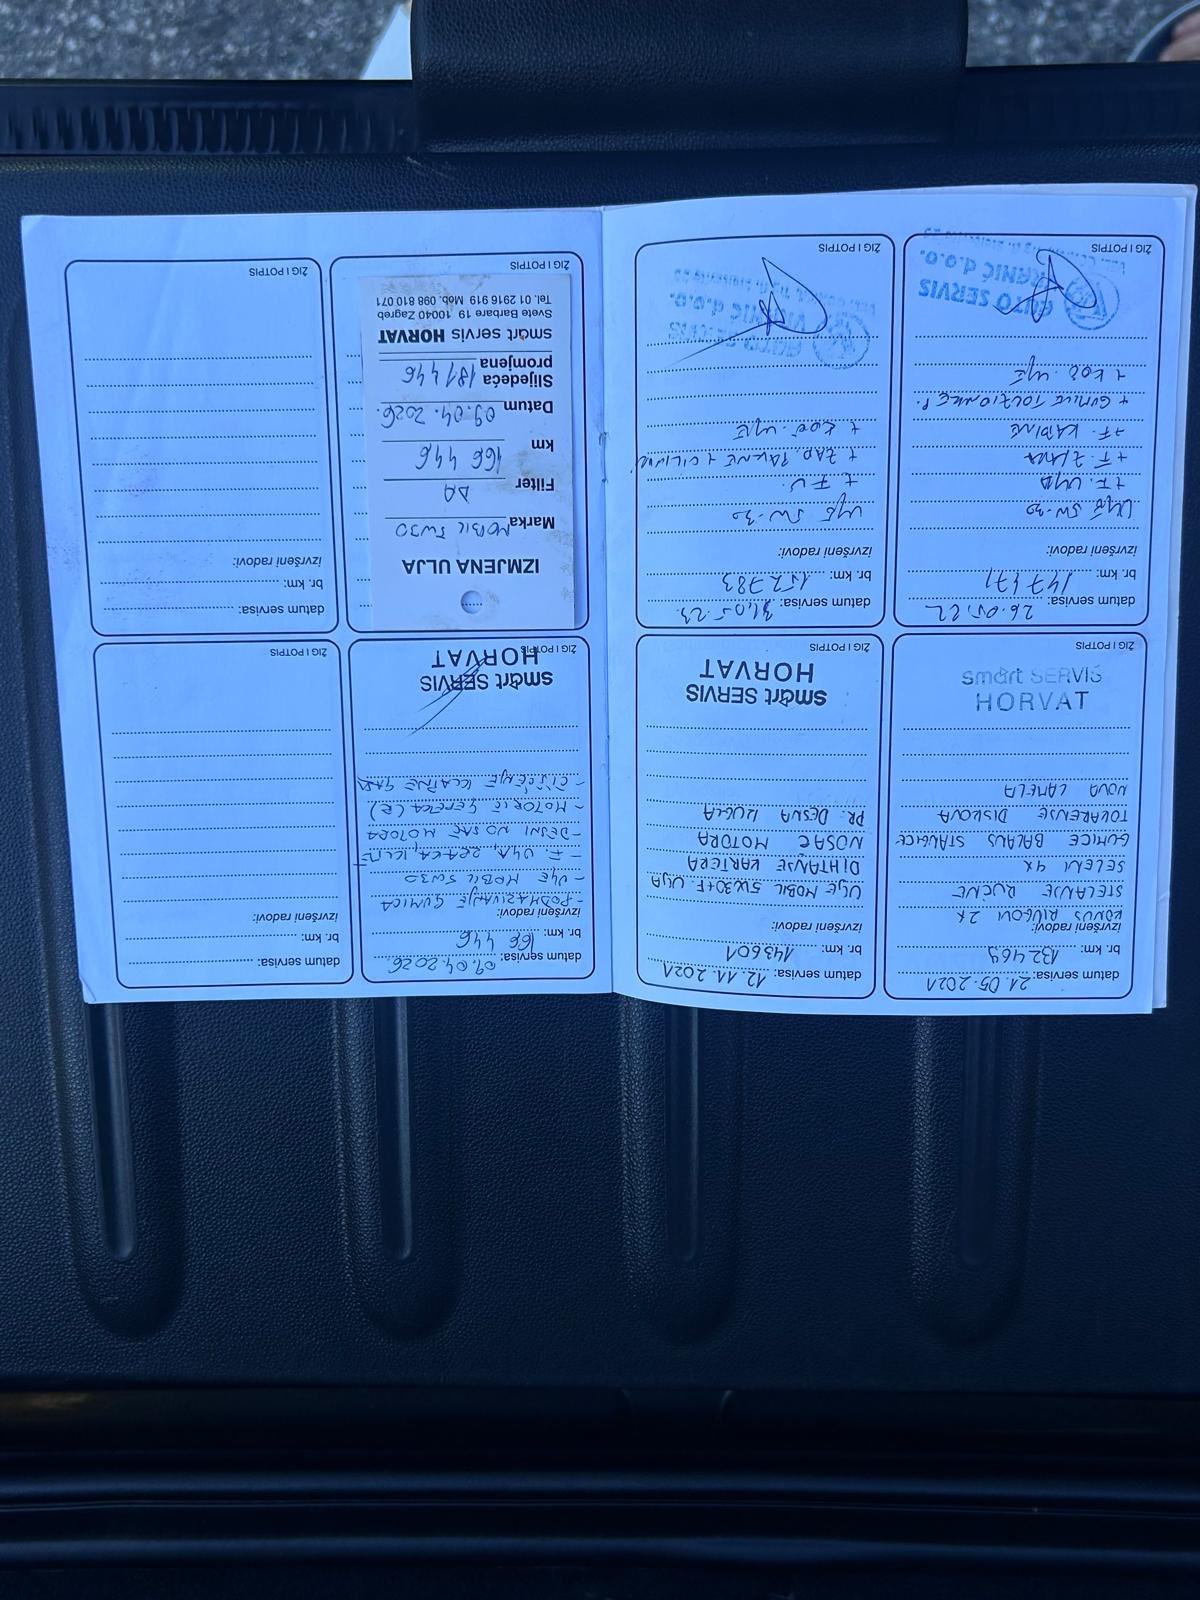 datum servisa: 21.05.2021
br. km: 132469
izvršeni radovi:
KONUS RIUGOVI 2X
STELANJE RUČNE
SELENI 4X
GUMICE BALANS STANGICE
NOVA LAMELA
smart SERVIS
HORVAT
ŽIG I POTPIS
datum servisa: 12.11.2021
br. km: 143601
izvršeni radovi:
ULJE MOBIL 5W30+F. ULJA
DIHTANJE KARTERA
NOSAČ MOTORA
PR. DESNA KUGLA
smart SERVIS
HORVAT
ŽIG I POTPIS
datum servisa: 26.05.22
br. km: 147471
izvršeni radovi:
ULJE 5W-30
+F. ULJA
+F. ZRAKA
+F. KABINE
+ KOČ. ULJE
AUTO SERVIS
VRANIĆ d.o.o.
ŽIG I POTPIS
datum servisa: 31.05.23.
br. km: 152783
izvršeni radovi:
ULJE 5W-30
+ F.U.
+ ZAD. PAKNE + CILINDRI
+ KOČ. ULJE
AUTO SERVIS
VRANIĆ d.o.o.
ŽIG I POTPIS
datum servisa: 09.04.2026
br. km: 166 446
izvršeni radovi:
- PODMAZIVANJE GUMICA
- ULJE MOBIL 5W30
- F. ULJA, ZRAKA, KLIME
- DESNI NOSAČ MOTORA
- ČIŠĆENJE KLAPNE GASA
smart SERVIS
HORVAT
ŽIG I POTPIS
datum servisa:
br. km:
izvršeni radovi:
ŽIG I POTPIS
IZMJENA ULJA
Marka MOBIL 5W30
Filter DA
km 166 446
Datum 09.04.2026.
Slijedeća
promjena 181446
smart servis HORVAT
Svete Barbare 19 10040 Zagreb
Tel. 01 2916 919 Mob. 098 810 071
ŽIG I POTPIS
datum servisa:
br. km:
izvršeni radovi:
ŽIG I POTPIS